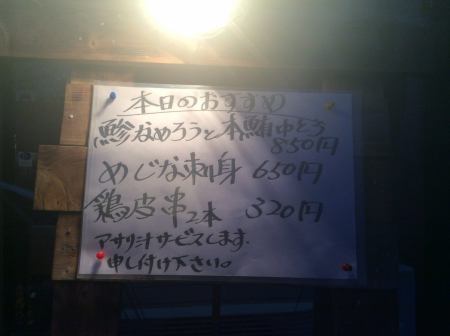 本日のおすすめ
鯵なめろうと本鮪中とろ
850円
めじな刺身 650円
鶏皮串2本 320円
アサリ汁サービスします.
申し付け下さい。